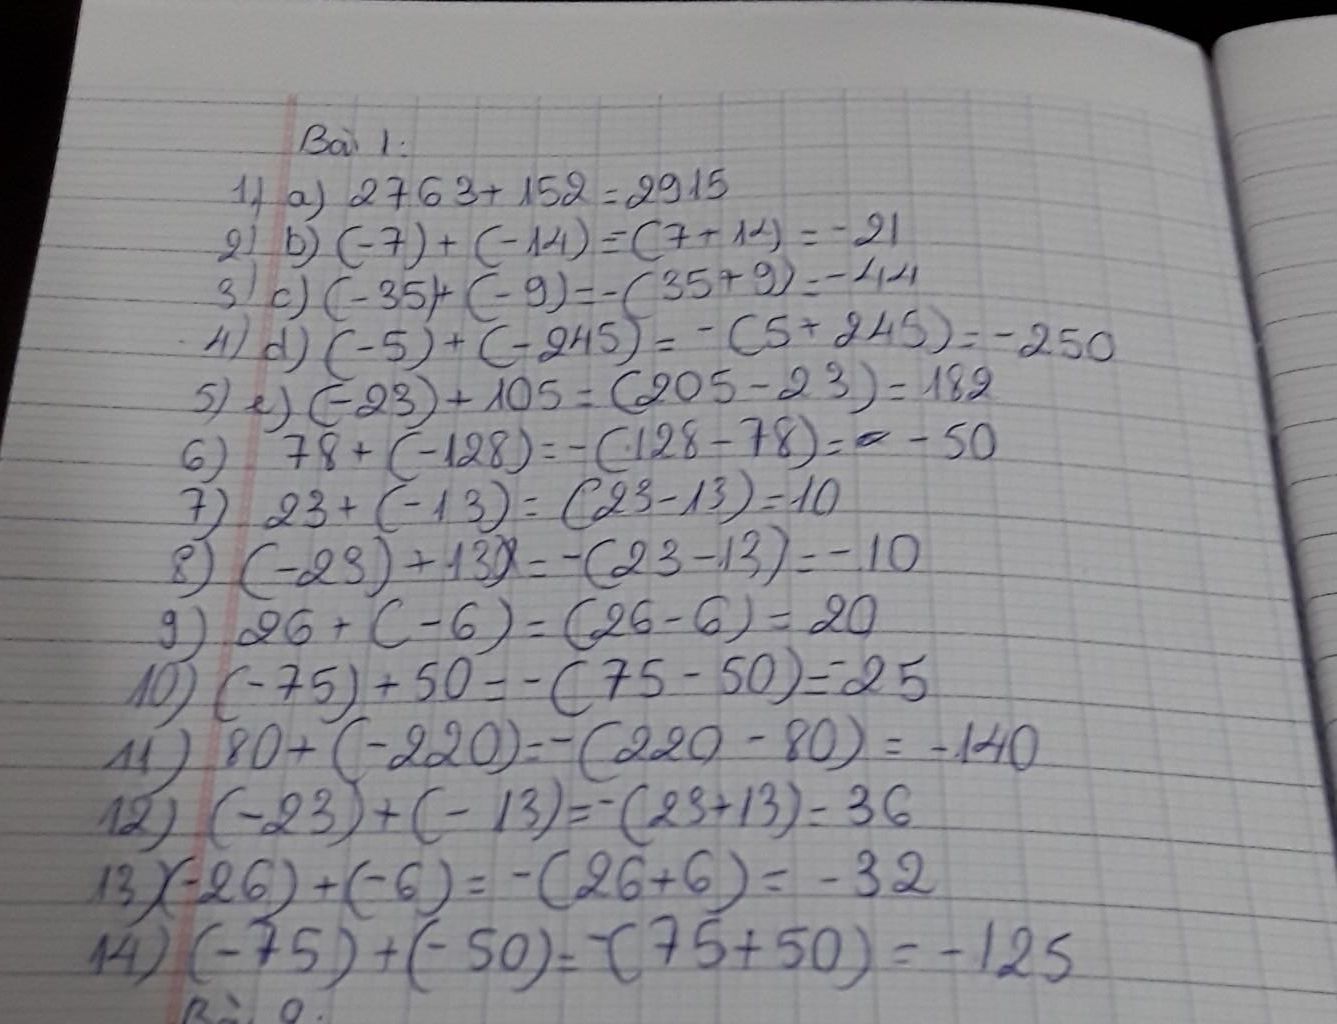 Bài 1:
1) a) 2763+152=2915
2) b) (-7)+(-14)=(7+14)=-21
3) c) (-35)+(-9)=-(35+9)=-44
4) d) (-5)+(-245)=-(5+245)=-250
5) e) (-23)+105=(205-23)=182
6) 78+(-128)=-(128-78)=-50
7) 23+(-13)=(23-13)=10
8) (-23)+13)=-(23-13)=-10
9) 26+(-6)=(26-6)=20
10) (-75)+50=-(75-50)=-25
11) 80+(-220)=-(220-80)=-140
12) (-23)+(-13)=-(23+13)=36
13) (-26)+(-6)=-(26+6)=-32
14) (-75)+(-50)=-(75+50)=-125